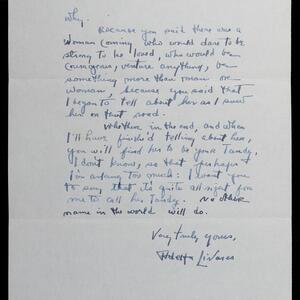 Why.
Because you said there is a
woman coming who would dare to be
strong to be loved, who would be
courageous, venture anything, be
something more than man or
woman, because you said that
I began to tell about her as I knew
her on that road.
Whether in the end, and when
I'll have finish'd telling about her,
you will find her to be your Tandy,
I don't know, so that perhaps
I'm asking too much: I want you
to say that it's quite all right for
me to call her Tandy. No other
name in the world will do.
Very truly yours,